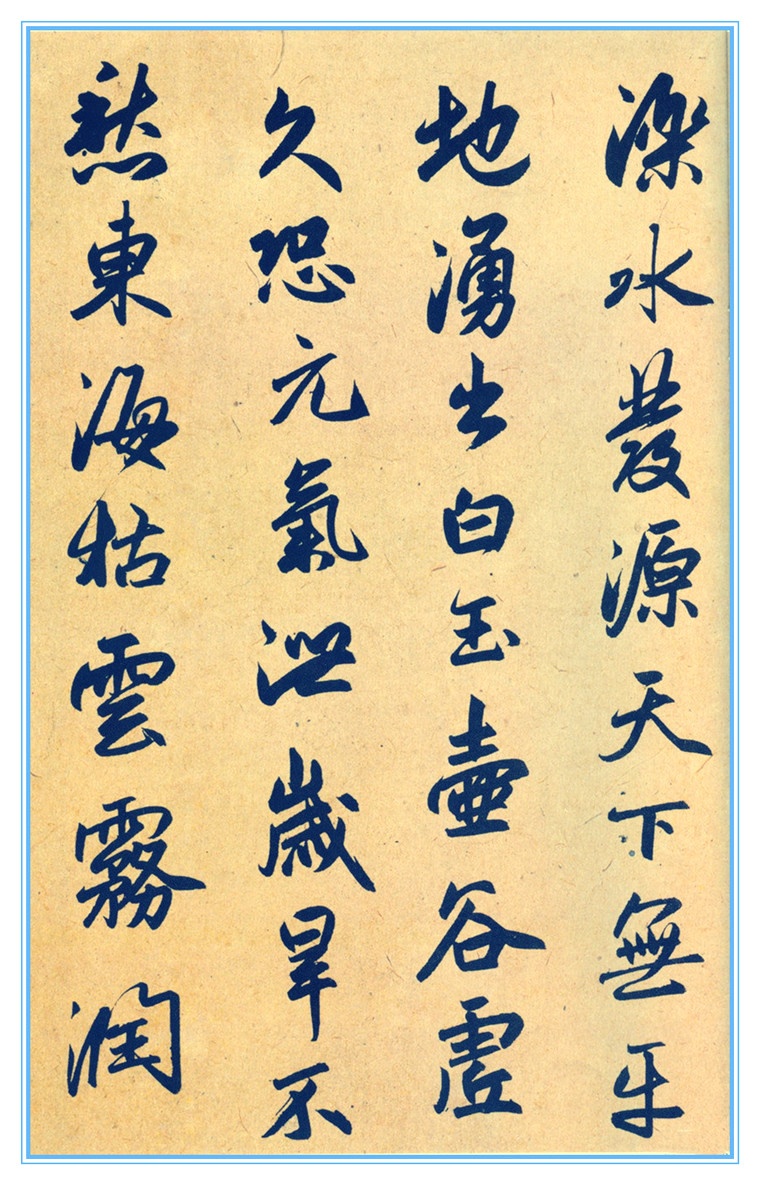 濼水發源天下無平
地湧出白玉壺谷虛
久恐元氣泄歲旱不
愁東海枯雲霧潤